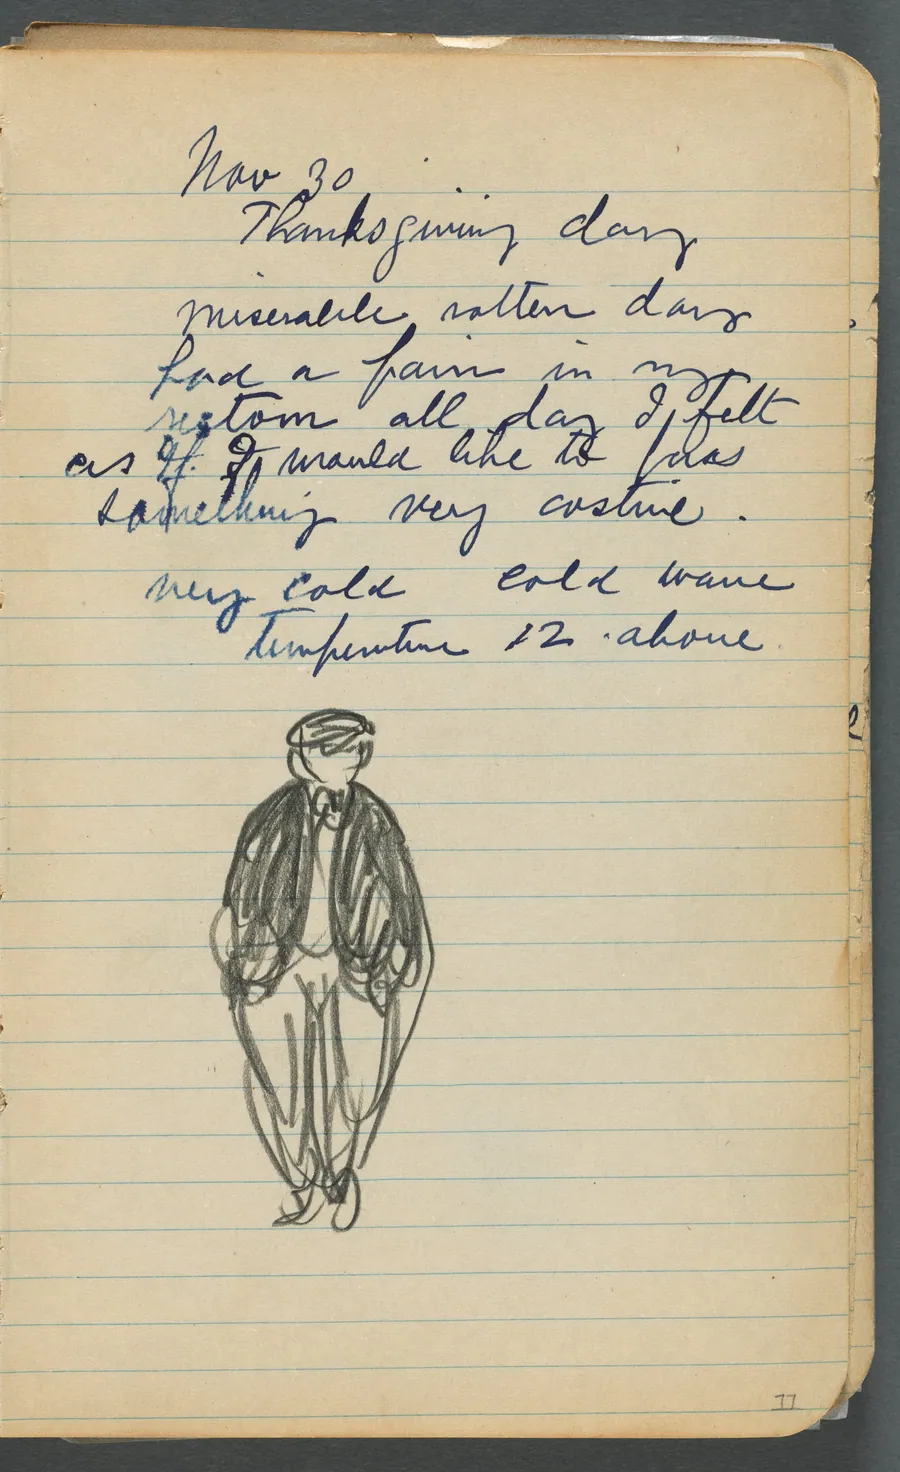 Nov 30
Thanksgiving day
miserable rotten day
had a pain in my
rectom all day I felt
as if I would like to pass
something very costive.
very cold cold wave
temperature 12 above
77